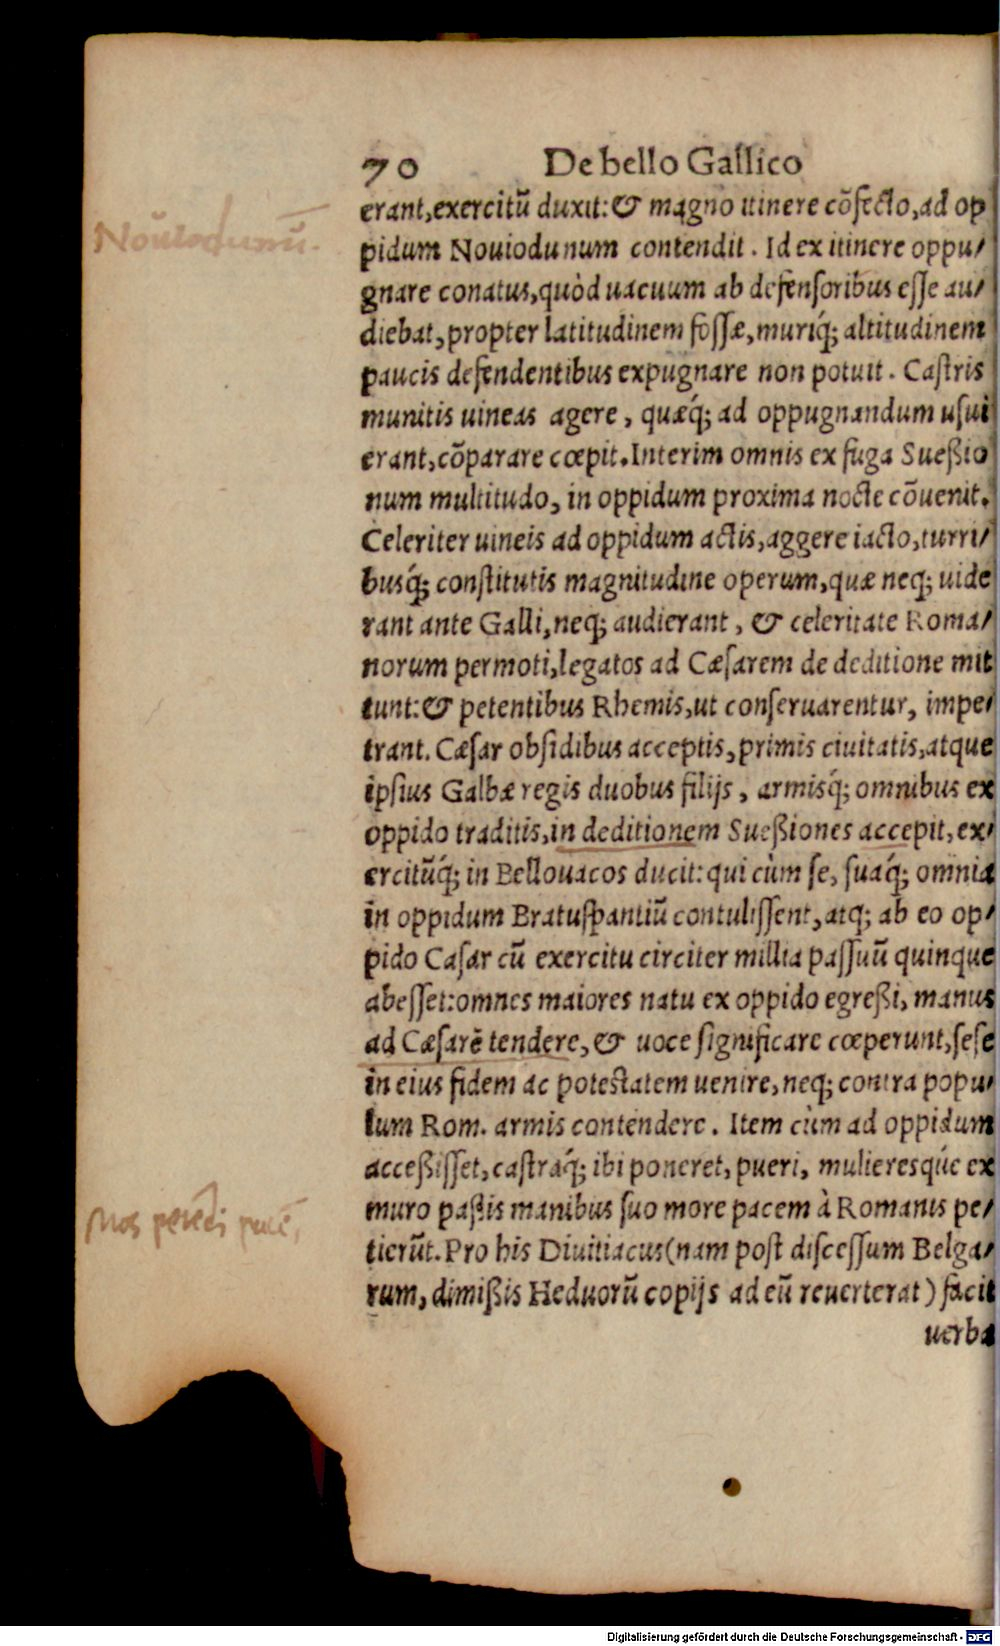 70 De bello Gallico
erant,exercitũ duxit:& magno itinere cõfecto,ad op
Nouiodunũ.
pidum Nouiodunum contendit. Id ex itinere oppu/
gnare conatus,quòd uacuum ab defensoribus esse au/
diebat,propter latitudinem fossæ,muriq́; altitudinem
paucis defendentibus expugnare non potuit. Castris
munitis uineas agere, quæq́; ad oppugnandum usui
erant,cõparare cœpit.Interim omnis ex fuga Sueßio
num multitudo, in oppidum proxima nocte cõuenit.
Celeriter uineis ad oppidum actis,aggere iacto,turri/
busq́; constitutis magnitudine operum,quæ neq; uide
rant ante Galli,neq; audierant, & celeritate Roma/
norum permoti,legatos ad Cæsarem de deditione mit
tunt:& petentibus Rhemis,ut conseruarentur, impe/
trant. Cæsar obsidibus acceptis,primis ciuitatis,atque
ipsius Galbæ regis duobus filijs, armisq́; omnibus ex
oppido traditis,in deditionem Sueßiones accepit,ex/
ercitũq́; in Bellouacos ducit: qui cùm se, suaq́; omnia
in oppidum Bratuspantiũ contulissent,atq; ab eo op/
pido Casar cũ exercitu circiter millia passuũ quinque
abesset:omnes maiores natu ex oppido egreßi, manus
ad Cæsarẽ tendere,& uoce significare cœperunt,sese
in eius fidem ac potestatem uenire,neq; contra popu/
lum Rom. armis contendere. Item cùm ad oppidum
acceßisset,castraq́; ibi poneret,pueri, mulieresqúe ex
Mos petẽdi pacẽ,
muro paßis manibus suo more pacem à Romanis pe/
tierũt.Pro his Diuitiacus(nam post discessum Belga/
rum, dimißis Heduorũ copijs ad eũ reuerterat) facit
uerba
Digitalisierung gefördert durch die Deutsche Forschungsgemeinschaft - DFG